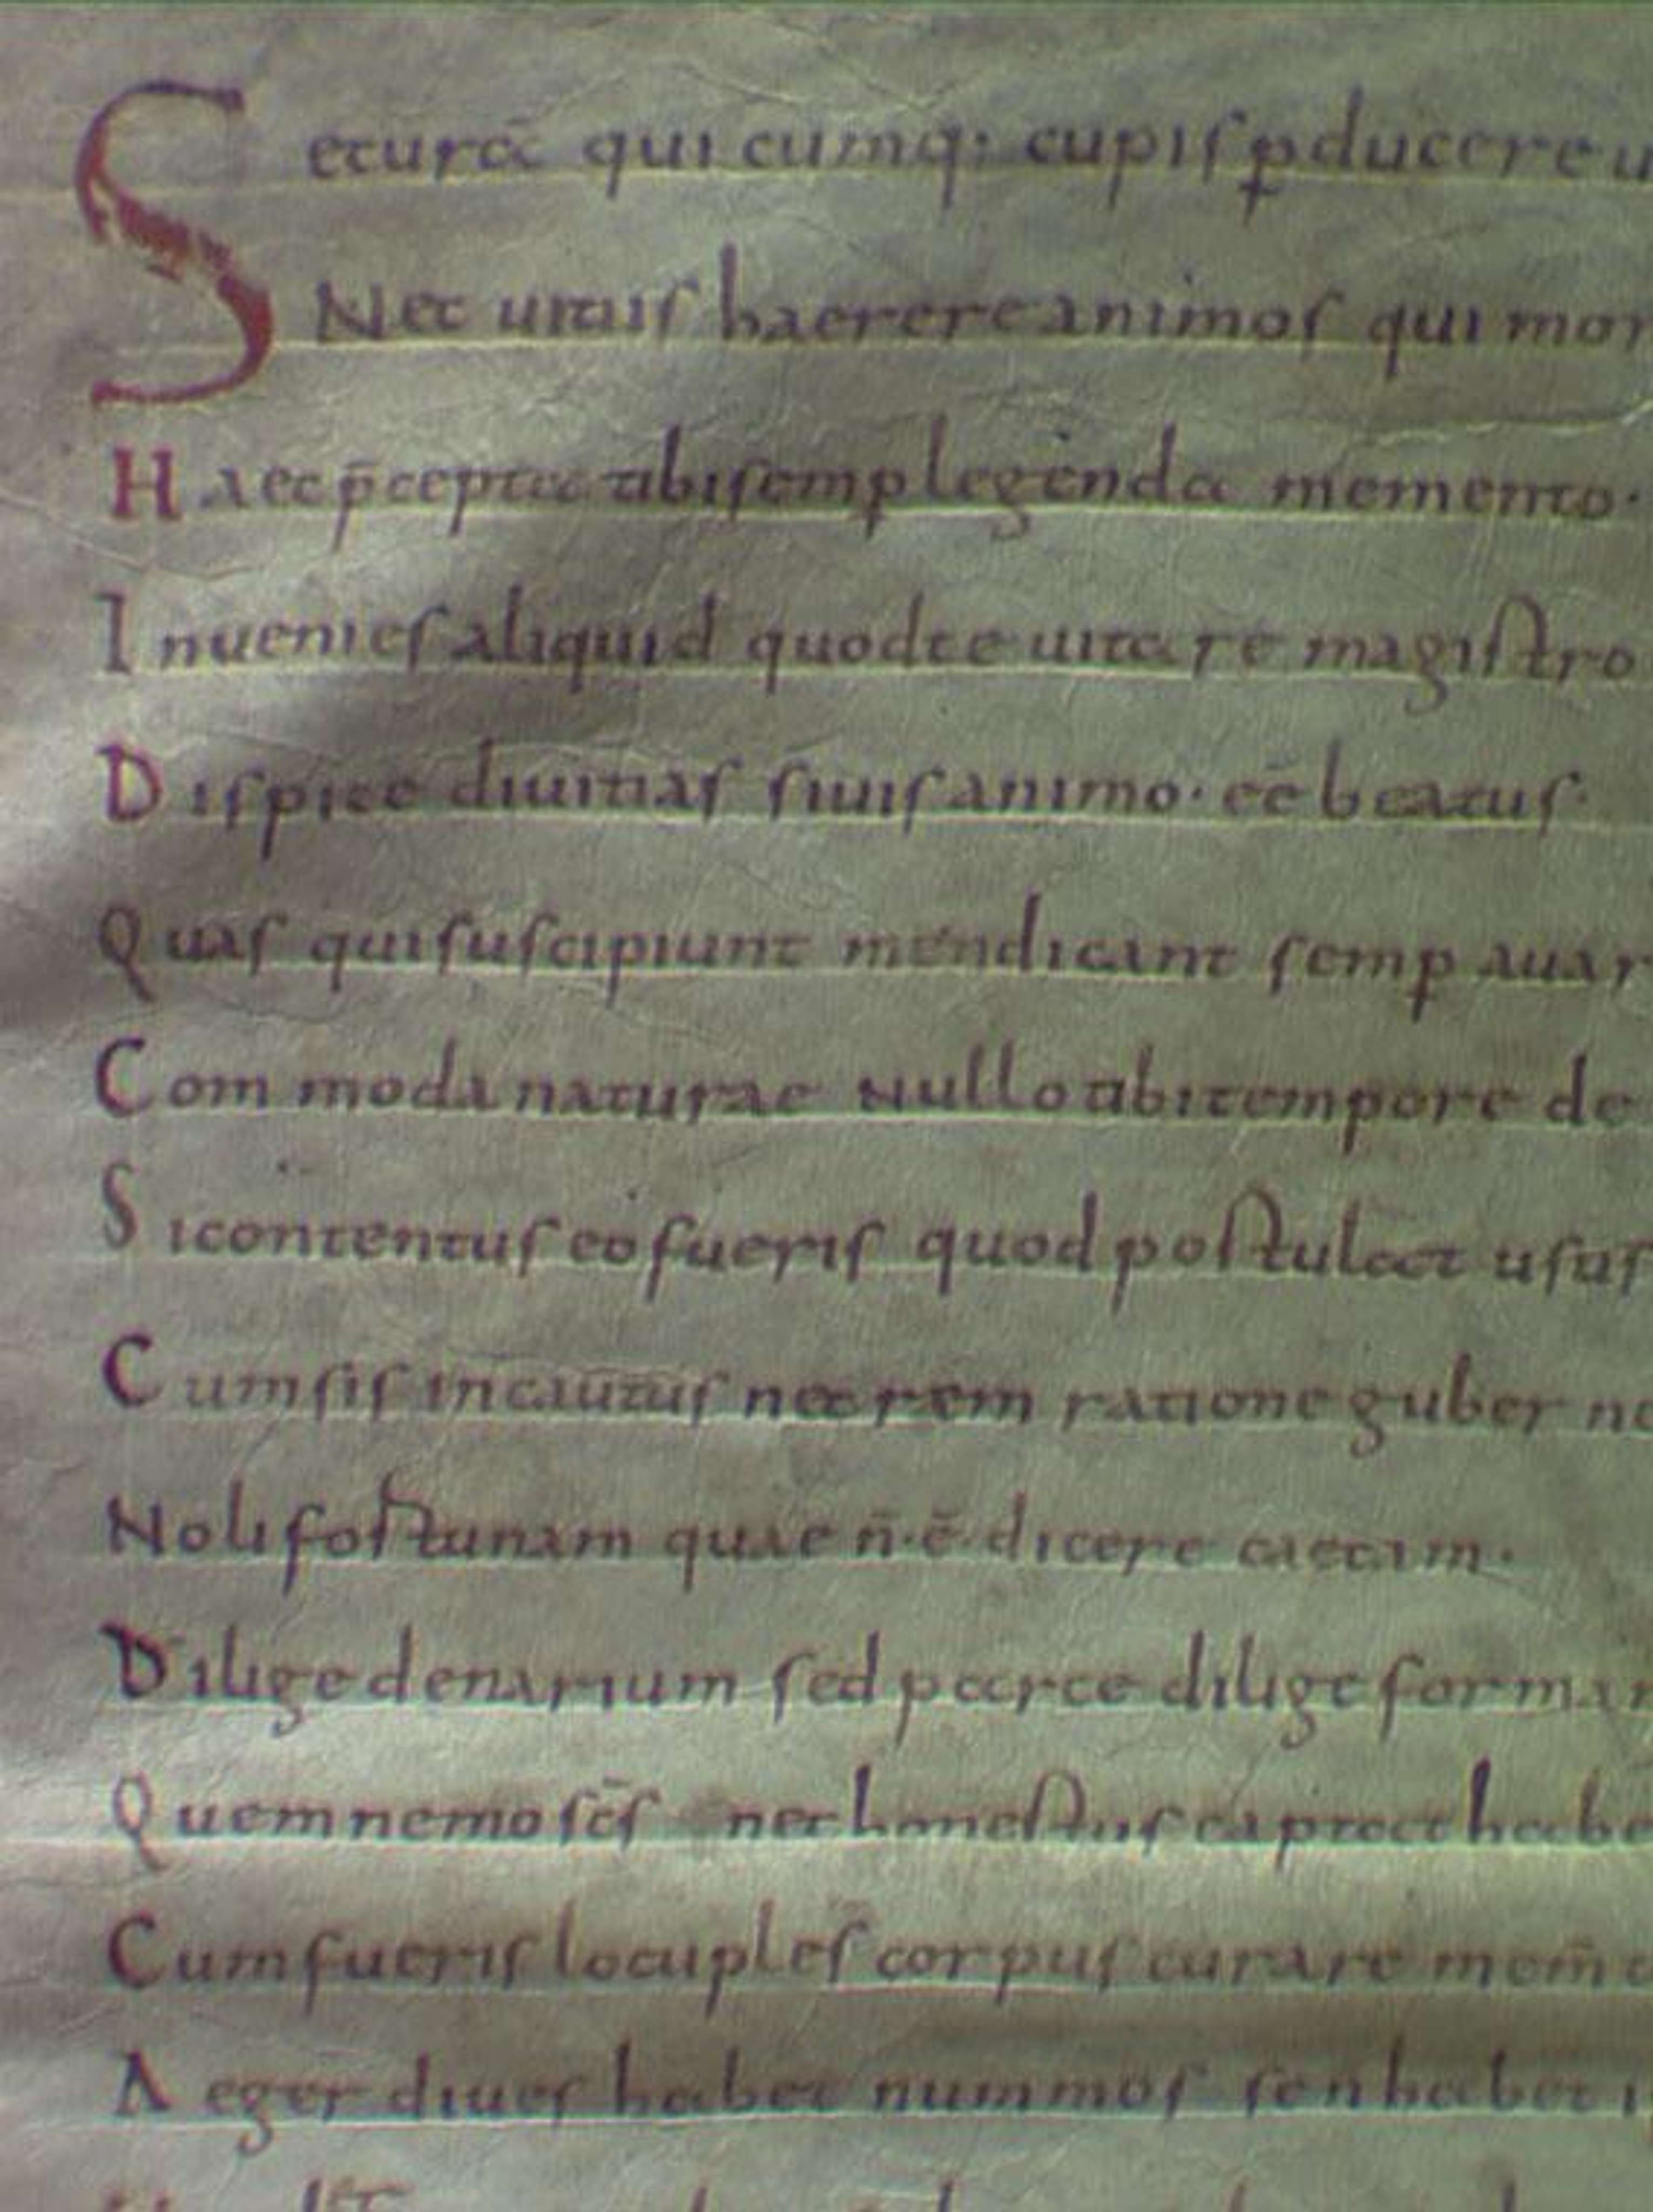 Seturā qui cumq; cupiſ ꝑducere u
Nec uitiiſ haerere animoſ qui mor
Haec p̄cepta tibi ſemꝑ legenda memento·
Inuenieſ aliquid quod te uitare magiſtro
Diſpice diuitiaſ ſi uiſ animo· eē beatuſ·
Quaſ qui ſuſcipiunt mendicant ſemꝑ auar
Commoda naturae nullo tibi tempore de
Si contentuſ eo fueriſ quod poſtulat uſuſ
Cum ſiſ incautuſ nec rem ratione guberne
Noli foſtunam quae n̄·ē· dicere caecam·
Dilige denarium ſed parce dilige formam
Quem nemo ſcſ̄ nec honeſtuſ captat habe
Cum fueriſ locupleſ corpuſ curare mem̄
Aeger diueſ habet nummoſ ſen habet